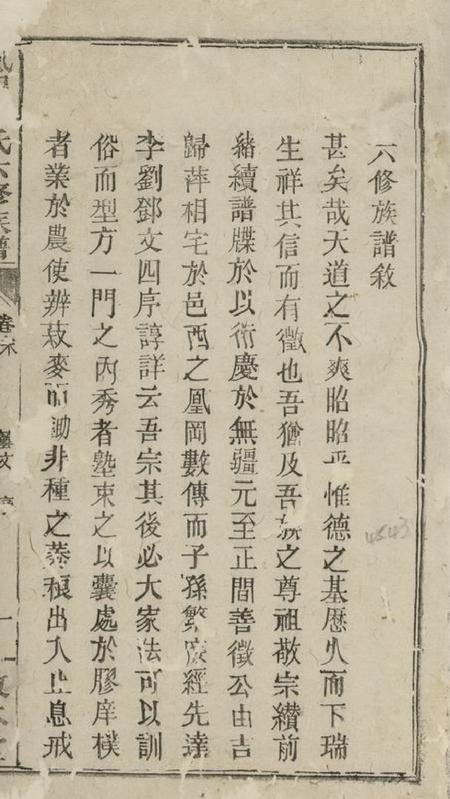 六修族譜敘
甚矣哉天道之不爽昭昭乎惟德之基歷久而下瑞
生祥其信而有徵也吾猶及吾族之尊祖敬宗纘前
緒續譜牒於以衍慶於無疆元至正間善徵公由吉
歸萍相宅於邑西之鳳岡數傳而子孫繁衍經先達
李劉鄧文四序諄詳云吾宗其後必大家法可以訓
俗而型方一門之內秀者塾束之以囊處於膠庠樸
者業於農使辨菽麥而鋤非種之蓁穢出入止息戒
氏六修族譜
卷末
一